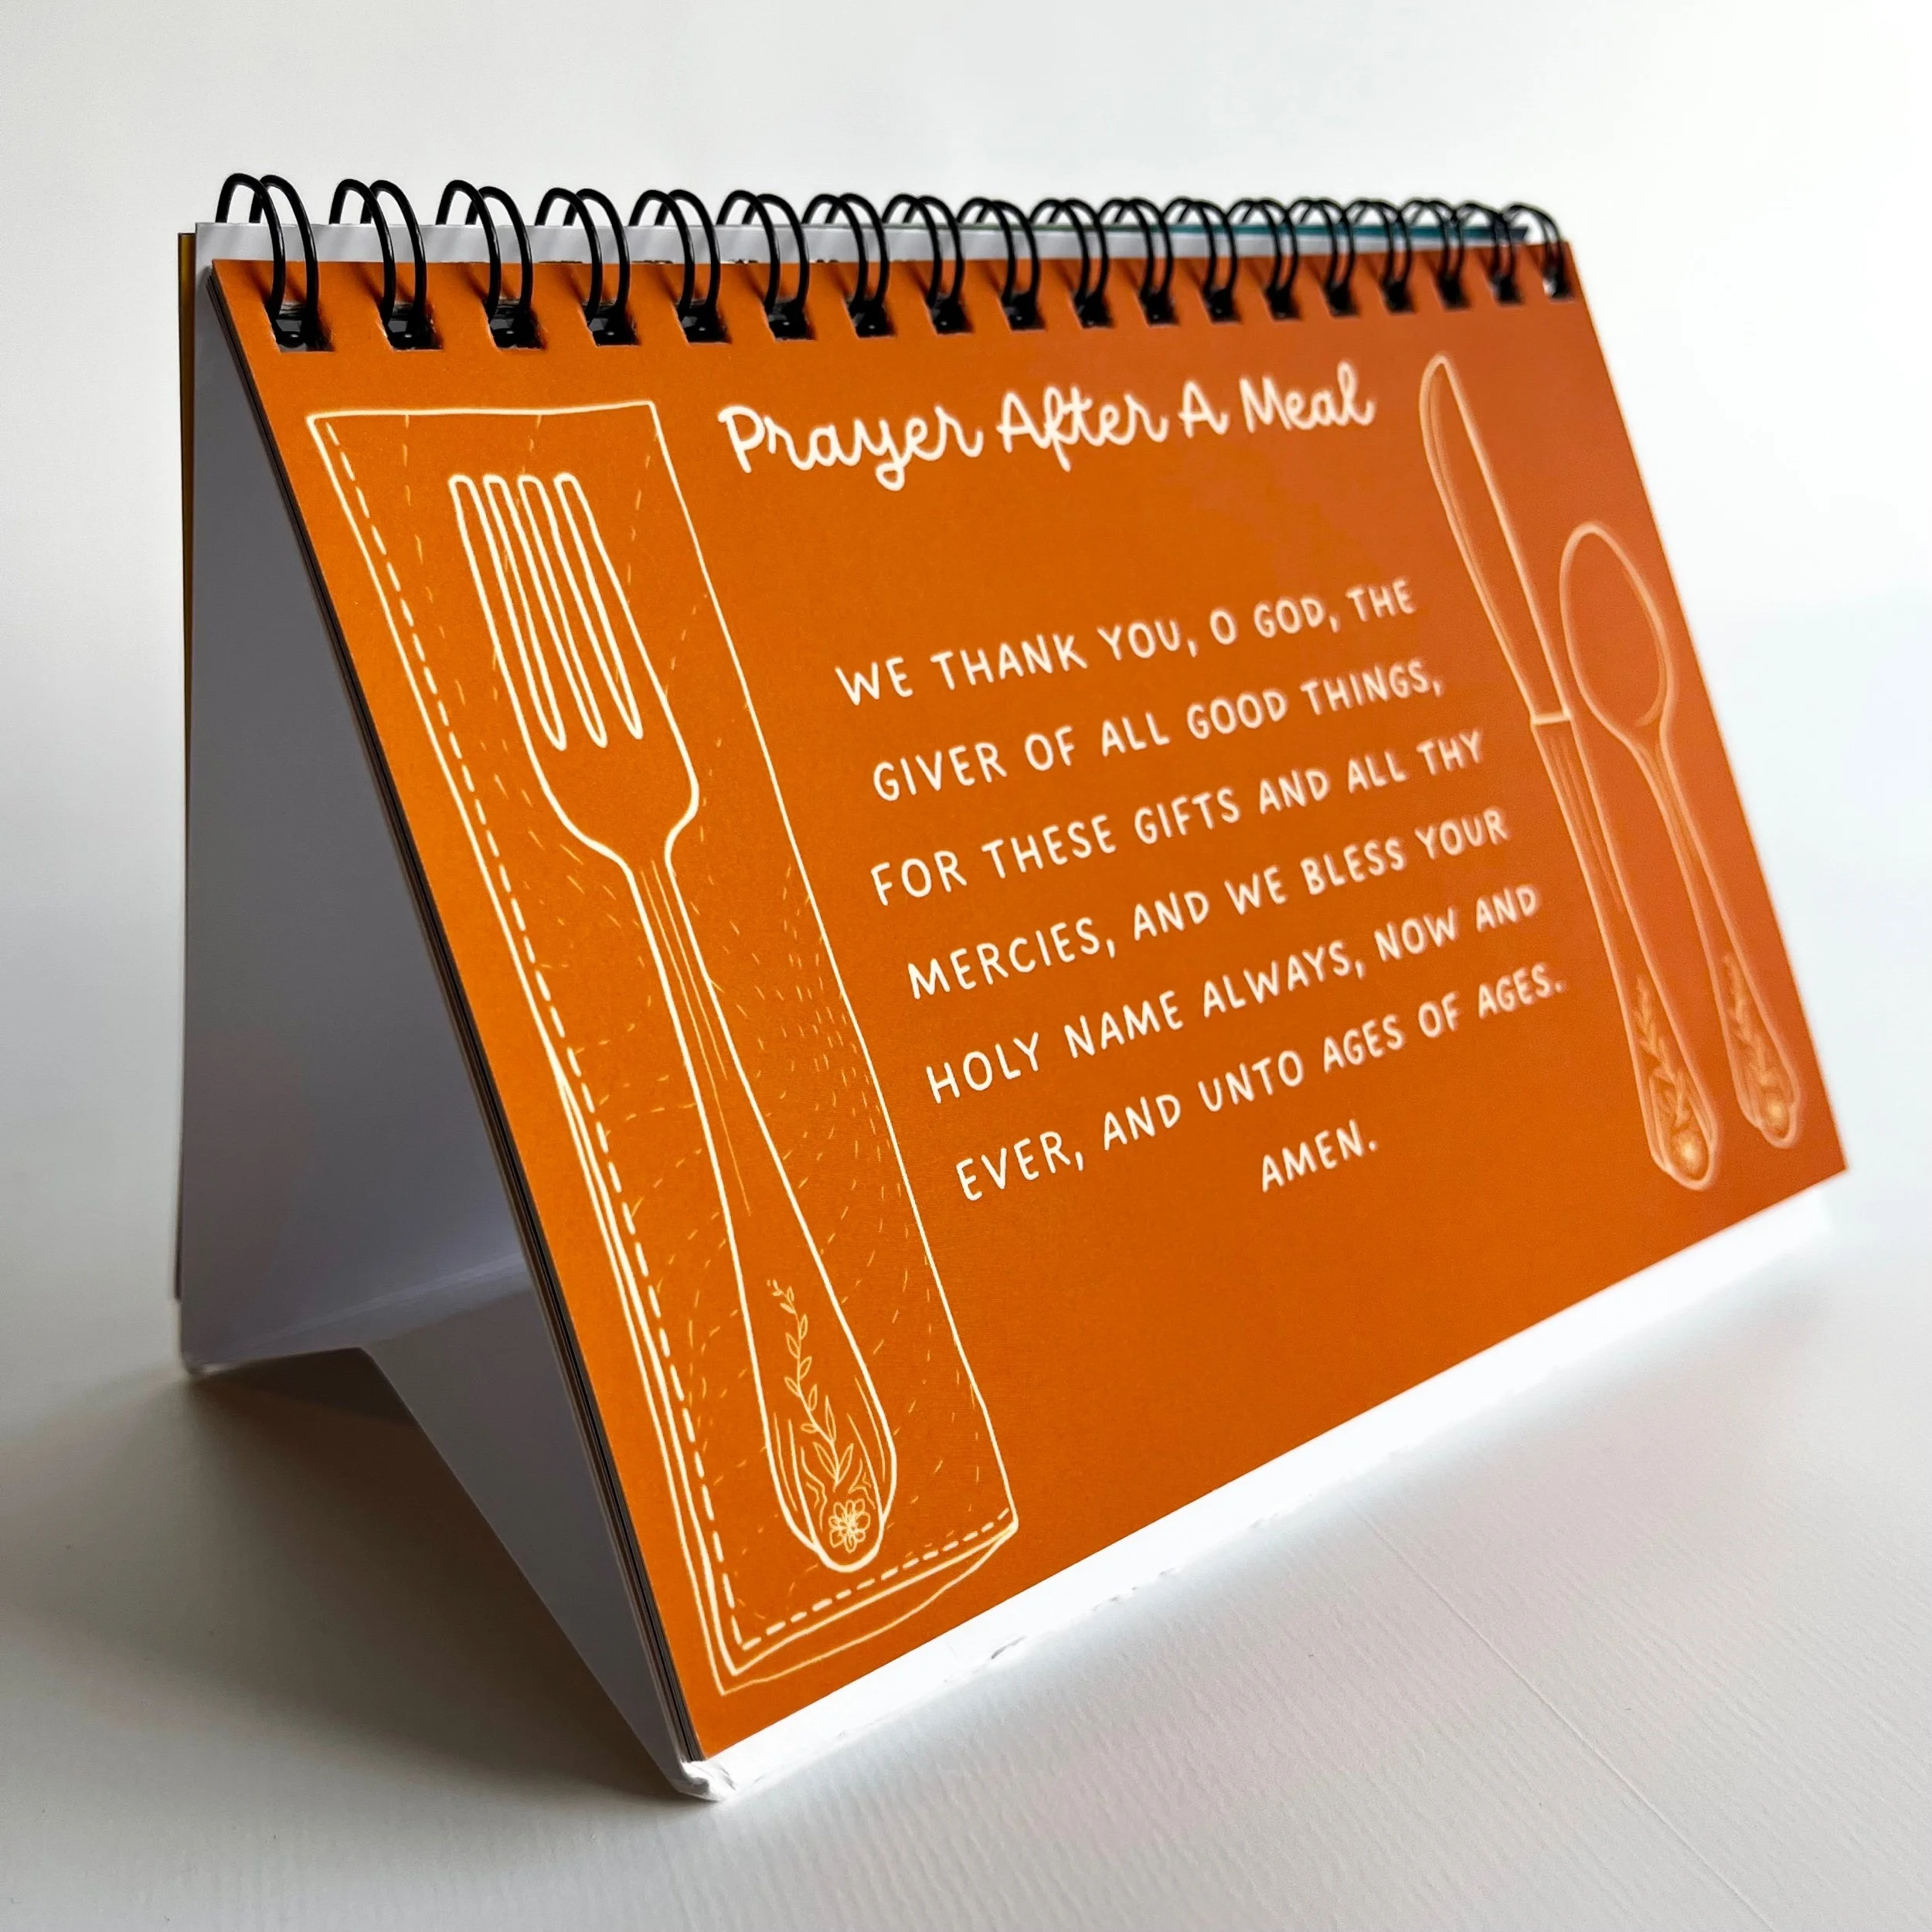 Prayer After A Meal
WE THANK YOU, O GOD, THE
GIVER OF ALL GOOD THINGS,
FOR THESE GIFTS AND ALL THY
MERCIES, AND WE BLESS YOUR
HOLY NAME ALWAYS, NOW AND
EVER, AND UNTO AGES OF AGES.
AMEN.